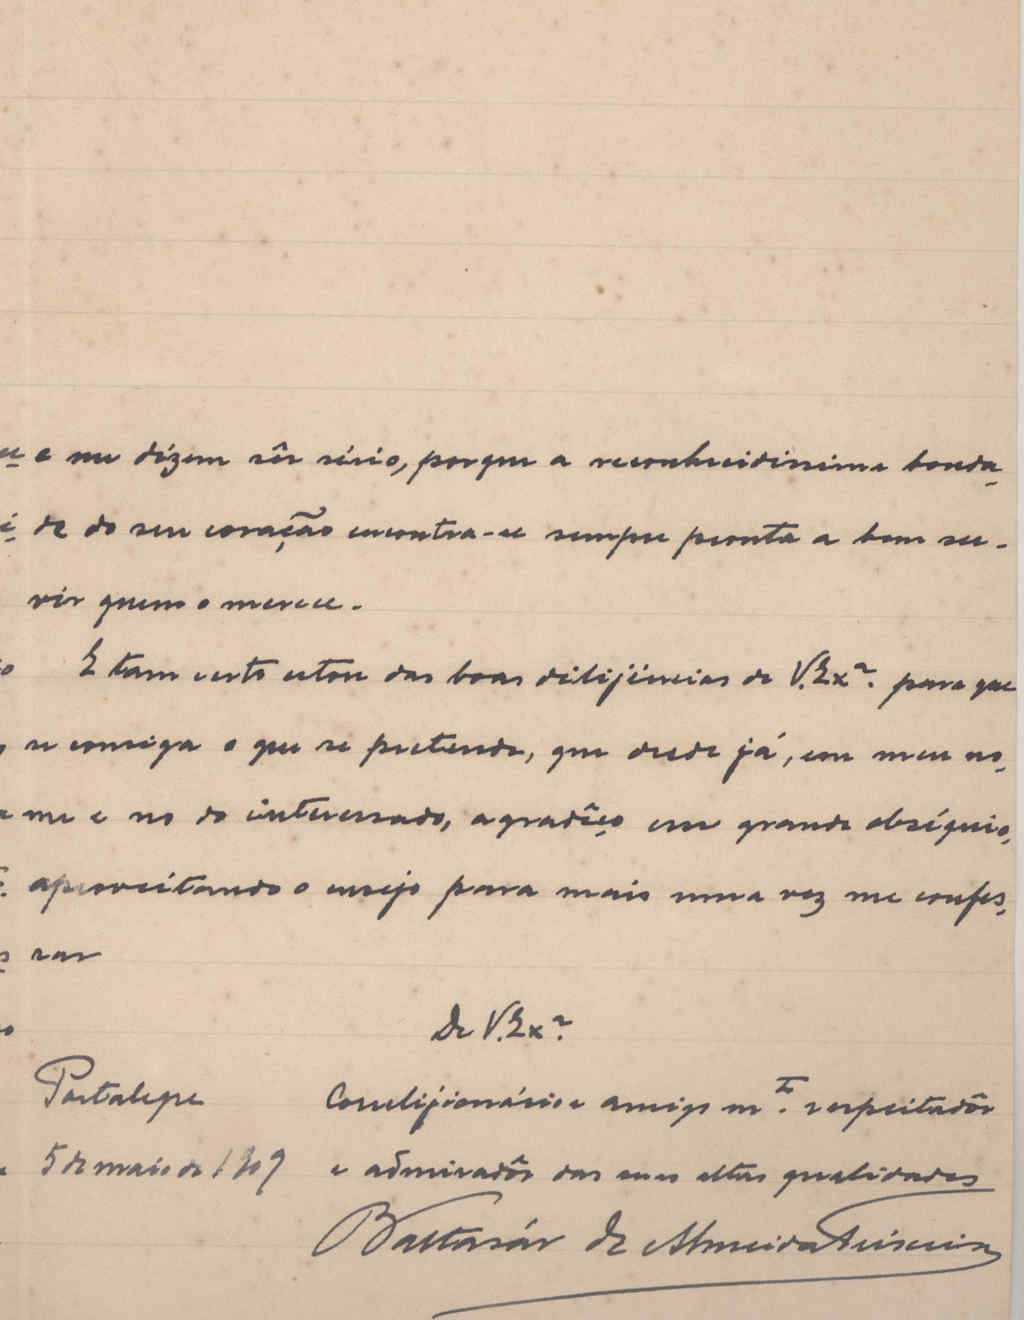 e me dizem sêr sério, porque a reconhecidissima bonda-
de do seu coração encontra-se sempre pronta a bem ser-
vir quem o merece.
E tam certo estou das boas dilijências de V. Exª. para que
se consiga o que se pretende, que desde já, em meu no-
me e no do interessado, agradêço em grande obséquio,
aproveitando o ensejo para mais uma vez me confes-
sar
De V. Exª.
Portalegre Correlijionário e amigo mto. respeitadôr
5 de maio de 1909 e admiradôr das suas altas qualidades
Baltasár de Almeida Teixeira